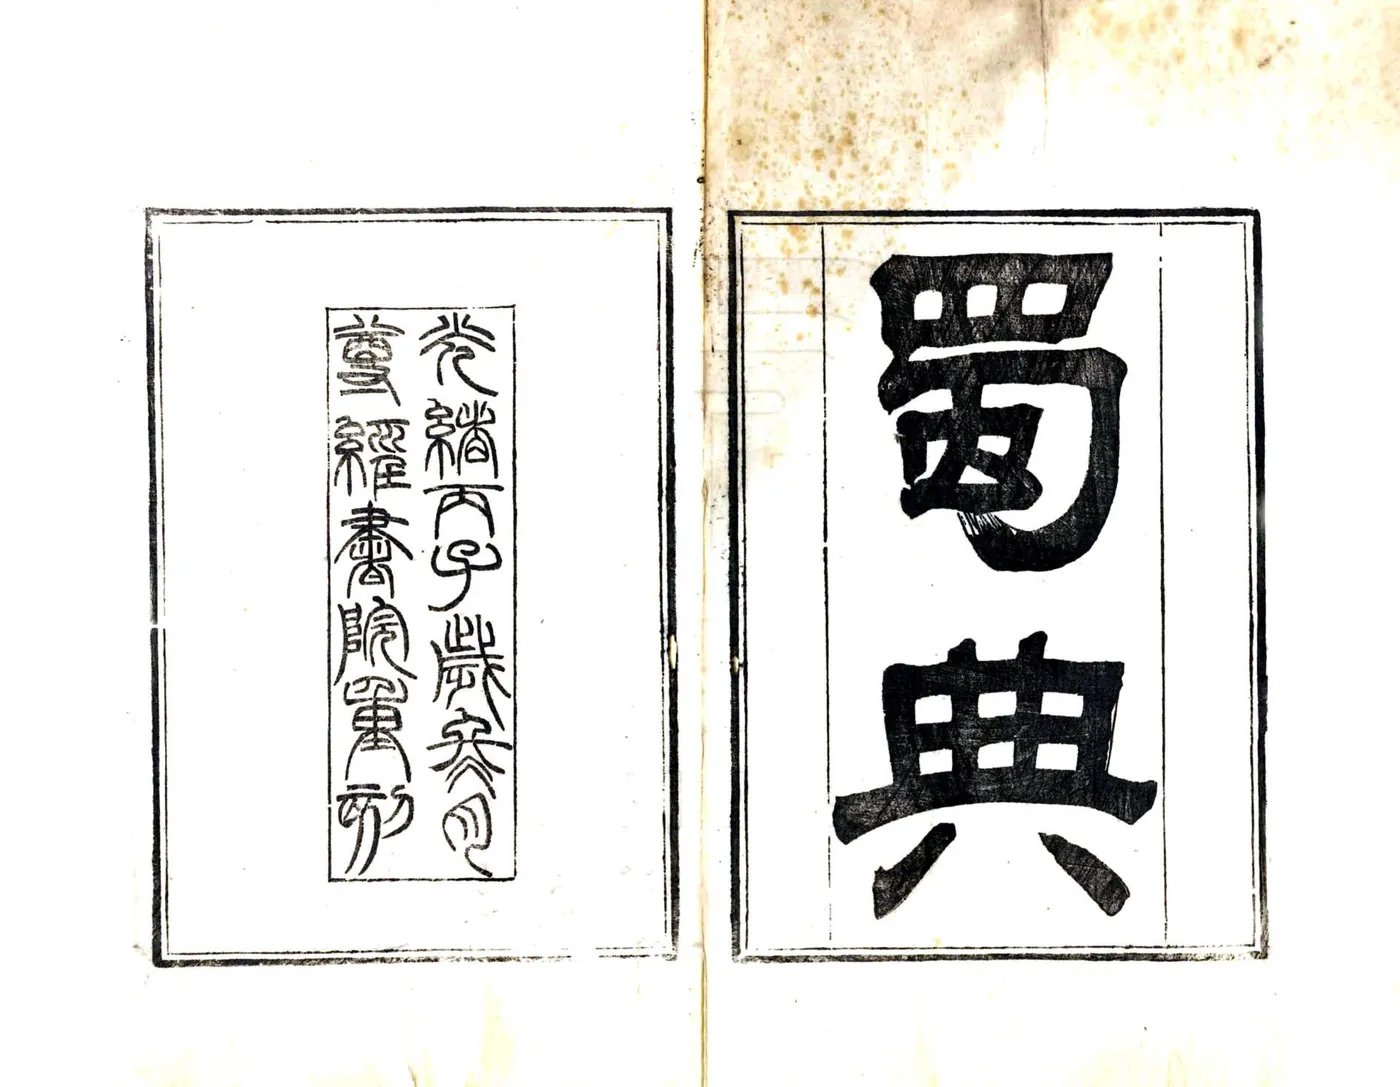 蜀典
光緒丙子歲叅月
尊經書院重刻